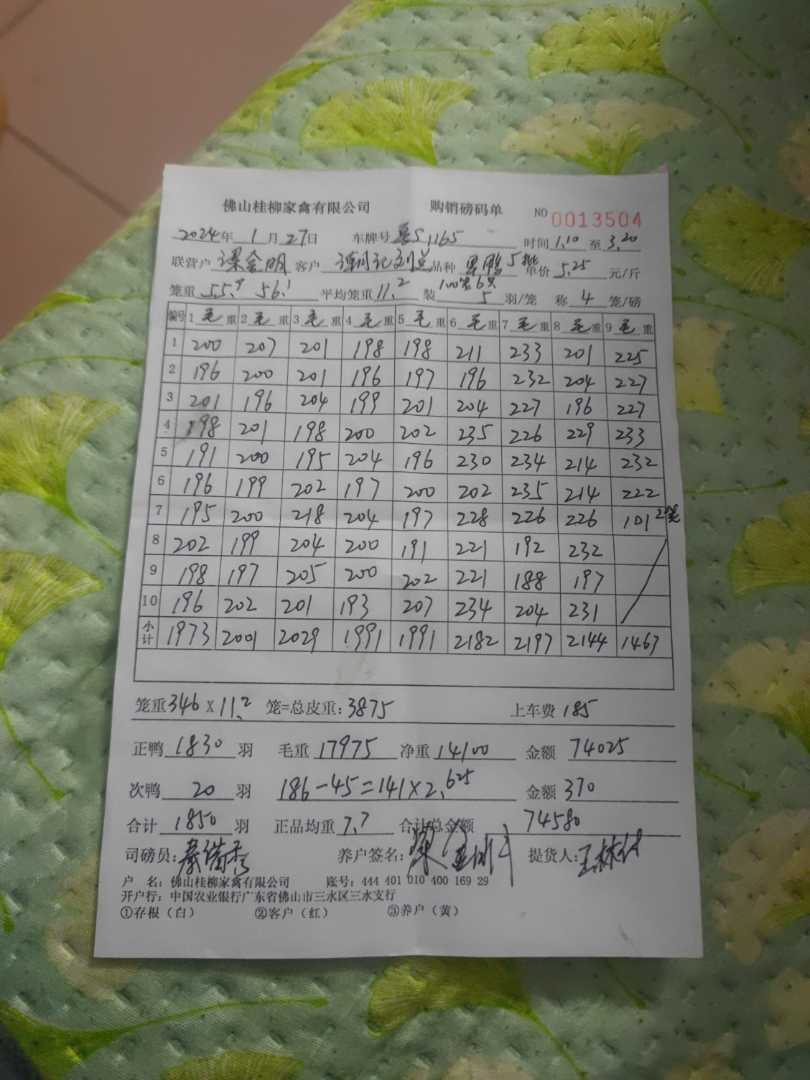 佛山桂柳家禽有限公司 购销磅码单 NO 0013504
2024年 1月27日 车牌号 S1165 时间 1.10 至 3.20
联营户 客户 品种 单价 5.25 元/斤
笼重 55.9 56.1 平均笼重 11.2 装 5 羽/笼 称 4 笼/磅
编号 1 毛 重 2 毛 重 3 毛 重 4 毛 重 5 毛 重 6 毛 重 7 毛 重 8 毛 重 9 毛 重
1 200 207 201 198 198 211 233 201 225
2 196 200 201 196 197 196 232 204 227
3 201 196 204 199 201 204 227 196 227
4 198 201 198 200 202 235 226 229 233
5 191 200 195 204 196 230 234 214 232
6 196 199 202 197 200 202 235 214 222
7 195 200 218 204 197 228 226 226 101 2笼
8 202 199 204 200 191 221 192 232
9 198 197 205 200 202 221 188 197
10 196 202 201 193 207 234 204 231
小计 1973 2001 2029 1991 1991 2182 2197 2144 1467
笼重 346 × 11.2 笼=总皮重: 3875 上车费 185
正鸭 1830 羽 毛重 17975 净重 14100 金额 74025
次鸭 20 羽 186-45=141×2.625 金额 370
合计 1850 羽 正品均重 7.7 合计总金额 74580
司磅员: 养户签名: 提货人:
户 名: 佛山桂柳家禽有限公司 账号: 444 401 010 400 169 29
开户行: 中国农业银行广东省佛山市三水区三水支行
①存根（白） ②客户（红） ③养户（黄）